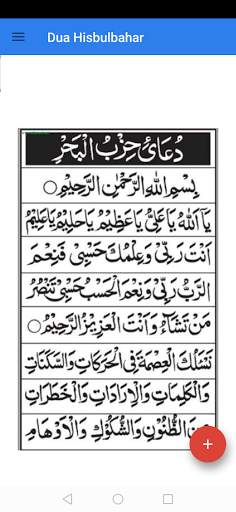 Dua Hisbulbahar
دُعَائ حِزْبُ الْبَحْرِ
بِسْمِ اللهِ الرَّحْمٰنِ الرَّحِيْمِ ○
يَآ اَللهُ يَا عَلِىُّ يَا عَظِيْمُ يَا حَلِيْمُ يَا عَلِيْمُ
اَنْتَ رَبِّىْ وَعِلْمُكَ حَسْبِىْ فَنِعْمَ
الرَّبُّ رَبِّىْ وَنِعْمَ الْحَسْبُ حَسْبِىْ تَنْصُرُ
مَنْ تَشَآءُ وَاَنْتَ الْعَزِيْزُ الرَّحِيْمُ ○
نَسْئَلُكَ الْعِصْمَةَ فِى الْحَرَكَاتِ وَالسَّكَنَاتِ
وَالْكَلِمَاتِ وَالْاِرَادَاتِ وَالْخَطَرَاتِ
مِنَ الظُّنُوْنِ وَالشُّكُوْكِ وَالْاَوْهَامِ